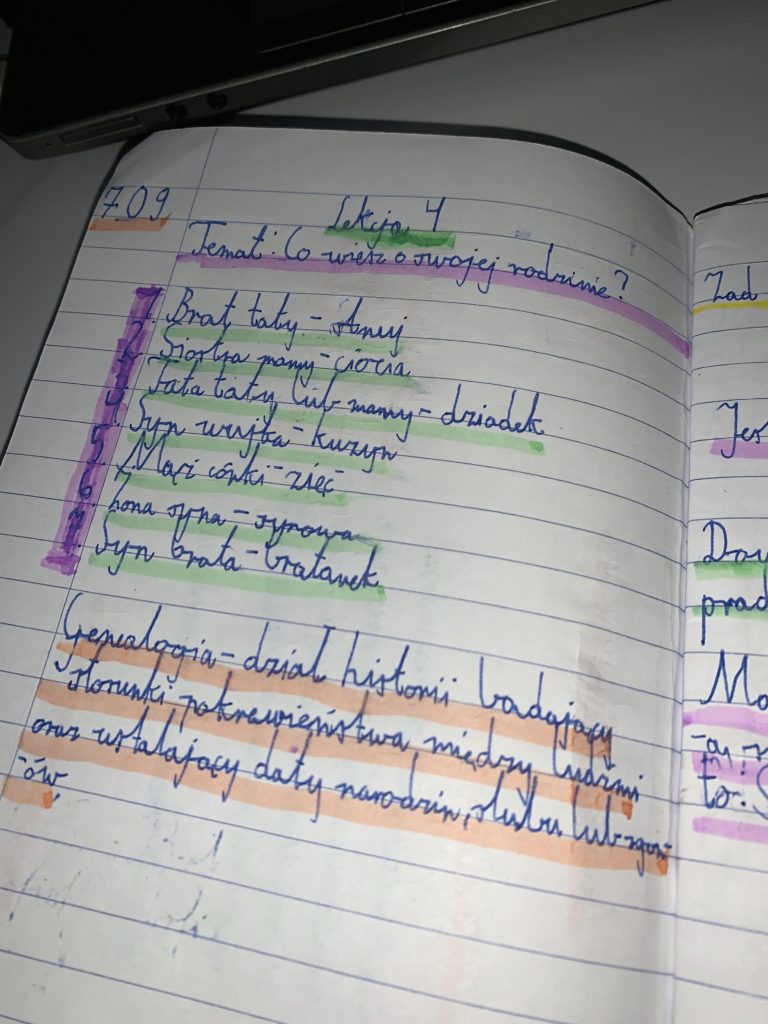 7.09
Lekcja 4
Temat: Co wiesz o swojej rodzinie?
1. Brat taty - stryj
2. Siostra mamy - ciocia
3. Tata taty lub mamy - dziadek
4. Syn wujka - kuzyn
5. Mąż córki - zięć
6. Żona syna - synowa
7. Syn brata - bratanek
Genealogia - dział historii badający
stosunki pokrewieństwa między ludźmi
oraz ustalający daty narodzin, ślubu lub zgon-
-ów
Zad
Jes
Do
prad
Mo
to.